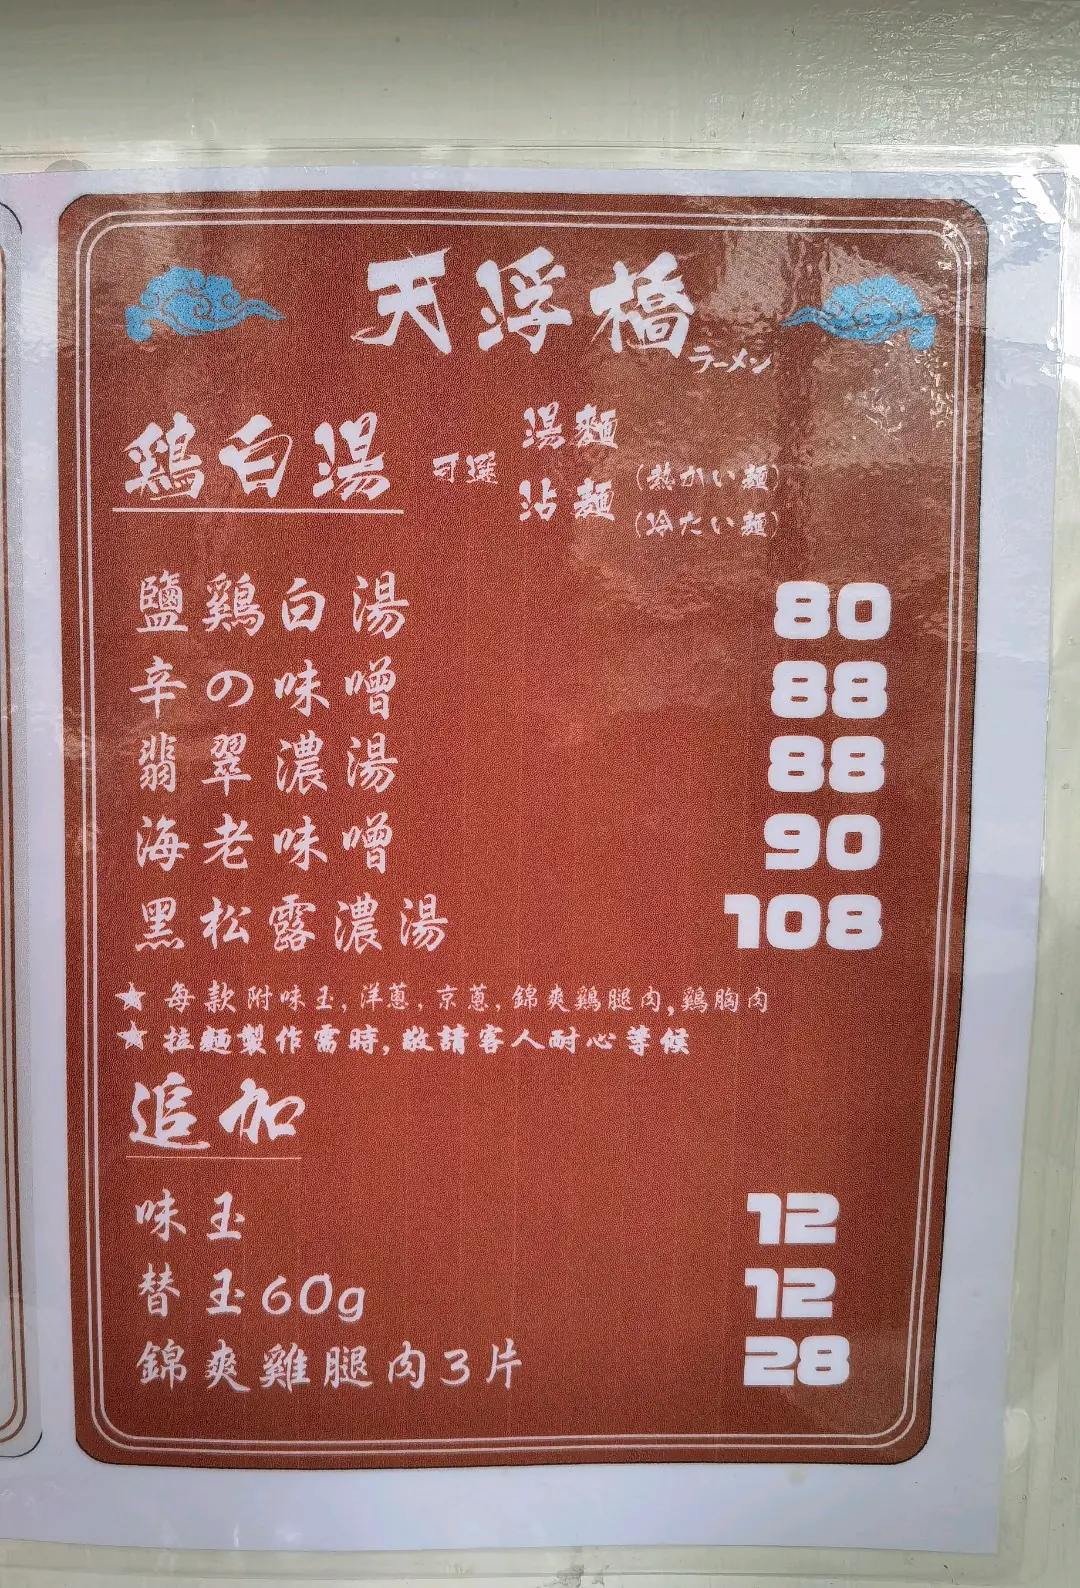 天浮橋
ラーメン
鶏白湯 可選 湯麵
沾麵 (熱かい麵)
(冷たい麵)
鹽鶏白湯 80
辛の味噌 88
翡翠濃湯 88
海老味噌 90
黑松露濃湯 108
★ 每款附味玉, 洋蔥, 京蔥, 錦爽鶏腿肉, 鶏胸肉
★ 拉麵製作需時, 敬請客人耐心等候
追加
味玉 12
替玉60g 12
錦爽雞腿肉3片 28